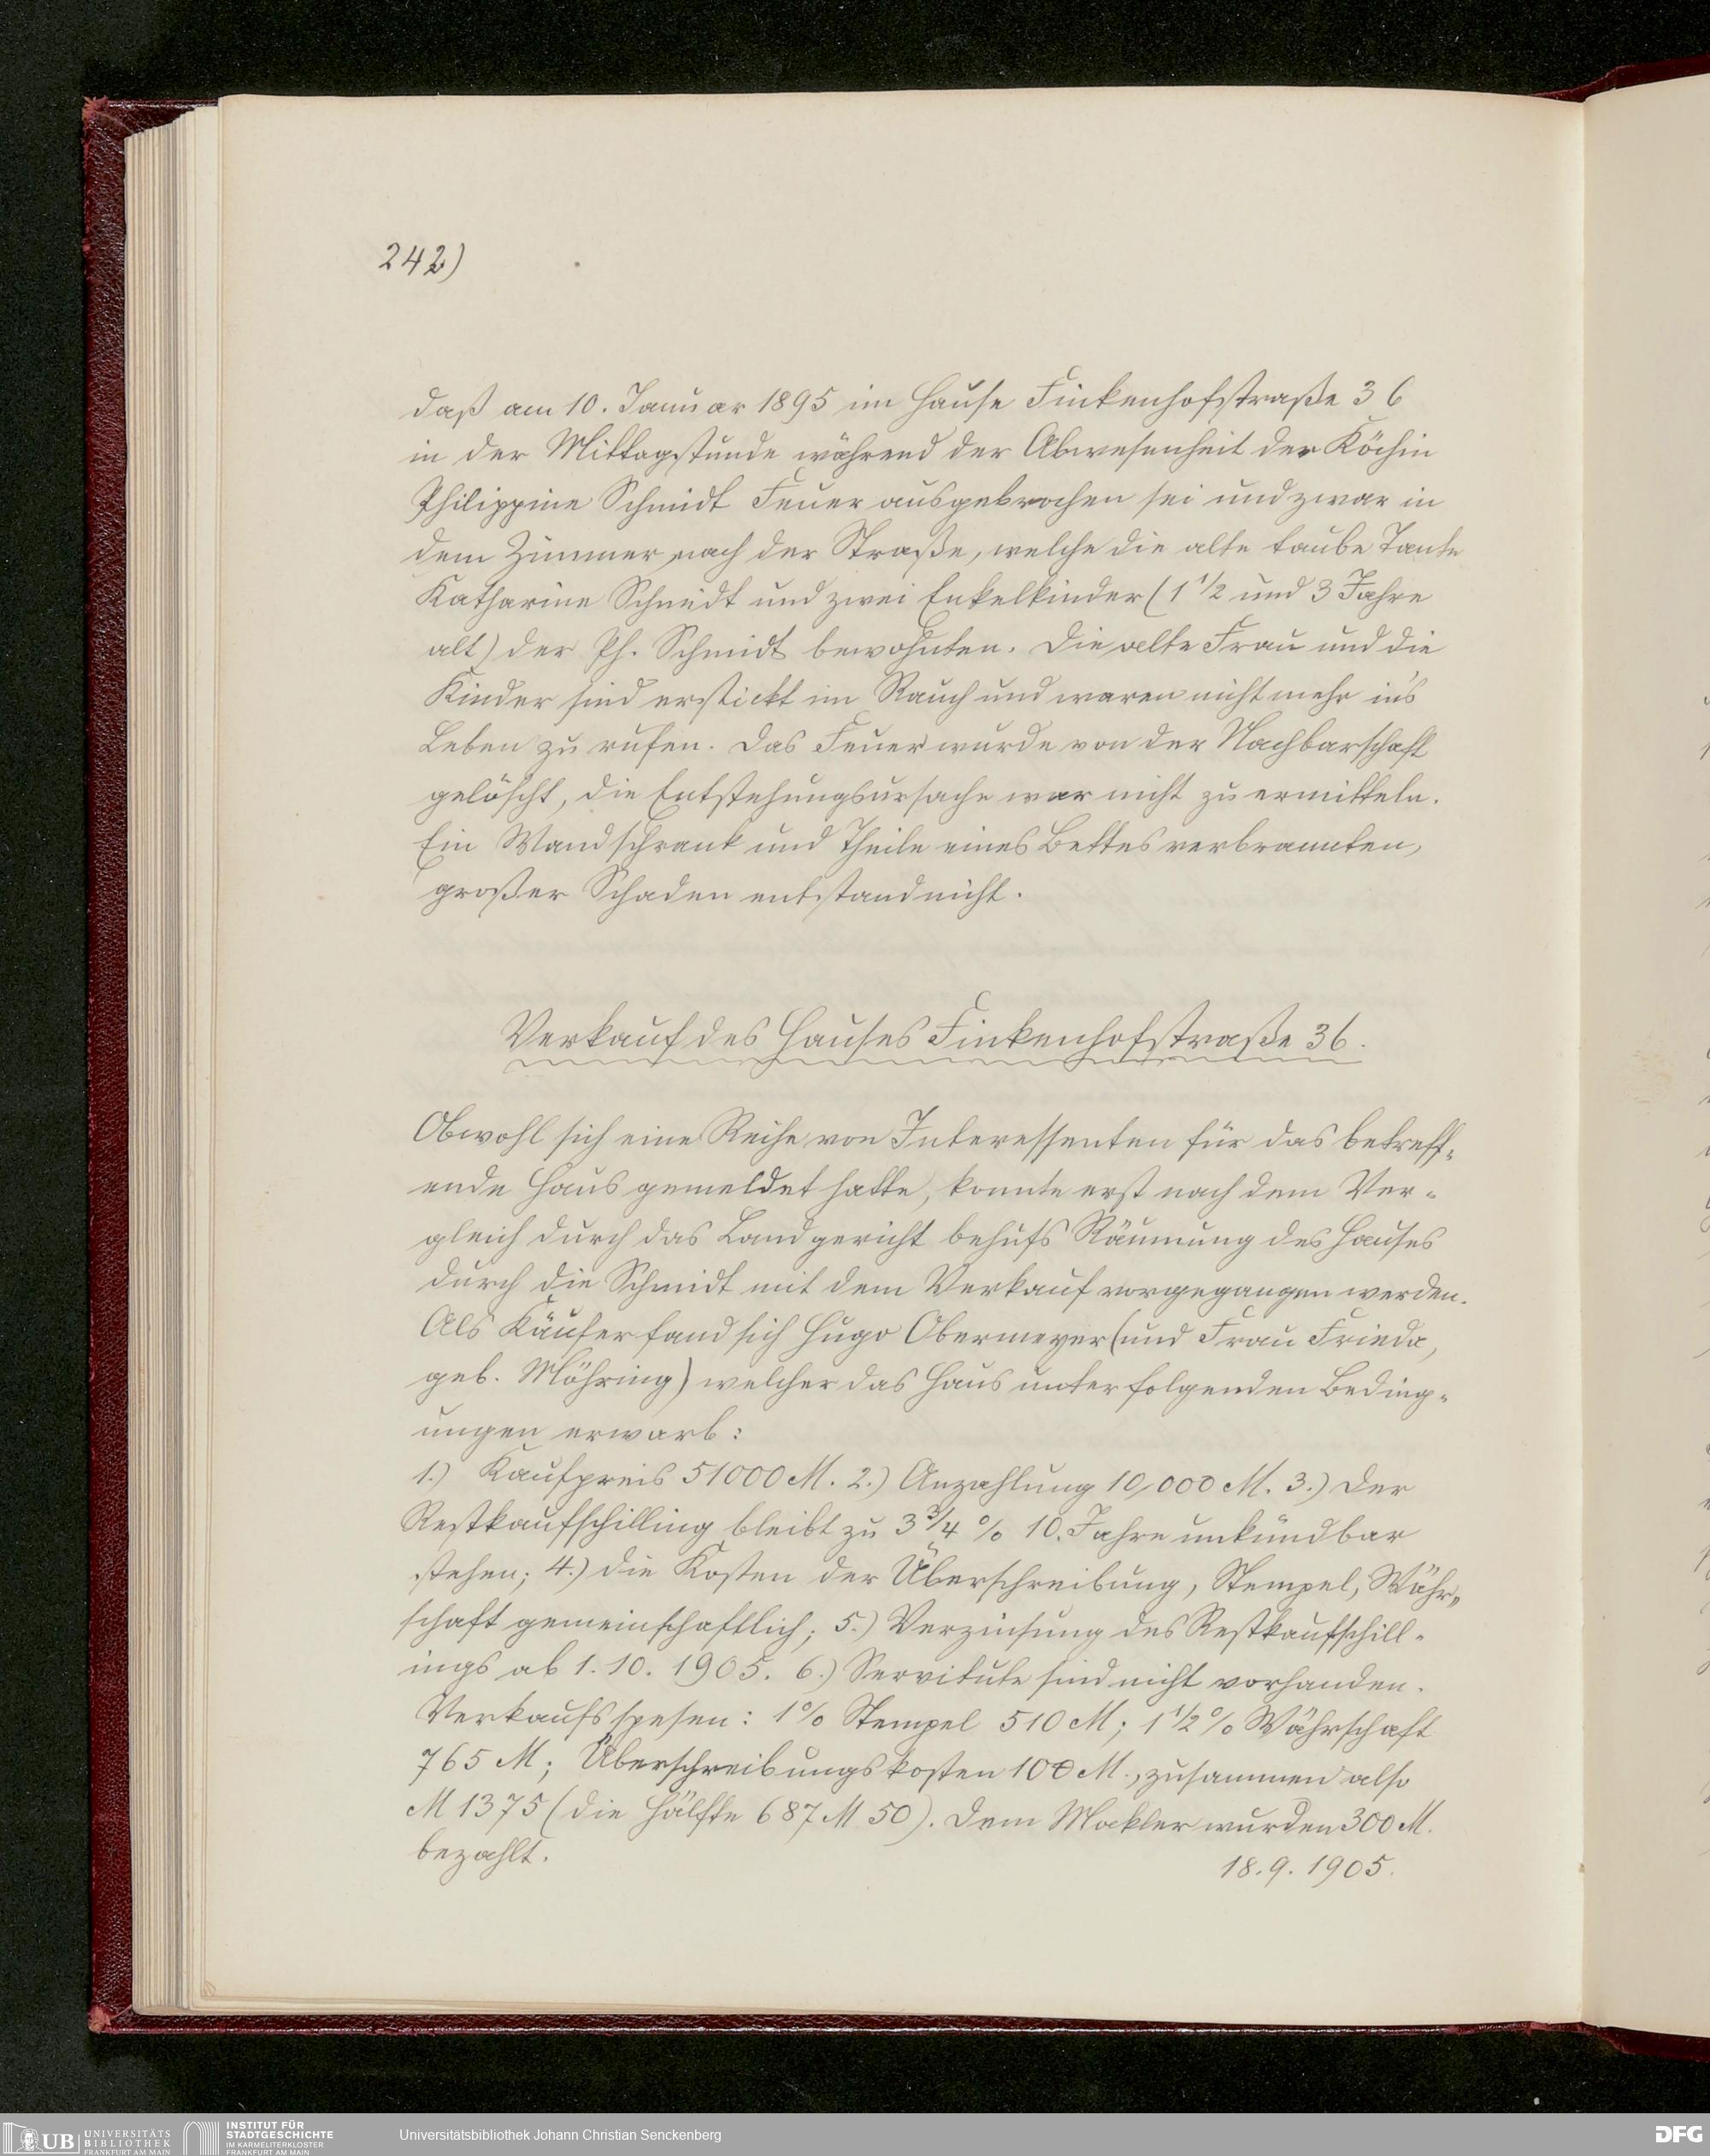 242)
daß am 10. Januar 1895 im Hause Finkenhofstraße 36
in der Mittagstunde während der Abwesenheit der Köchin
Philippine Schmidt Feuer ausgebrochen sei und zwar in
dem Zimmer nach der Straße, welche die alte taube Tante
Katharine Schmidt und zwei Enkelkinder (1 1/2 und 3 Jahre
alt) der Ph. Schmidt bewohnten. Die alte Frau und die
Kinder sind erstickt im Rauch und waren nicht mehr in's
Leben zu rufen. Das Feuer wurde von der Nachbarschaft
gelöscht, die Entstehungsursache war nicht zu ermitteln.
Ein Wandschrank und Theile eines Bettes verbrannten,
großer Schaden entstand nicht.
Verkauf des Hauses Finkenhofstraße 36.
Obwohl sich eine Reihe von Interessenten für das betreff-
ende Haus gemeldet hatte, konnte erst nach dem Ver-
gleich durch das Landgericht behufs Räumung des Hauses
durch die Schmidt mit dem Verkauf vorgegangen werden.
Als Käufer fand sich Hugo Obermeyer (und Frau Frieda,
geb. Möhring) welcher das Haus unter folgenden Beding-
ungen erwarb:
1.) Kaufpreis 51000 M. 2.) Anzahlung 10,000 M. 3.) Der
Restkaufschilling bleibt zu 3 3/4 % 10. Jahre unkündbar
stehen; 4.) die Kosten der Überschreibung, Stempel, Währ-
schaft gemeinschaftlich; 5.) Verzinsung des Restkaufschill-
ings ab 1. 10. 1905. 6.) Servitute sind nicht vorhanden.
Verkaufsspesen: 1% Stempel 510 M; 1 1/2 % Währschaft
765 M; Überschreibungskosten 100 M., zusammen also
M 1375 (die Hälfte 687 M 50). Dem Makler wurden 300 M.
bezahlt.
18. 9. 1905.
UB UNIVERSITÄTS
BIBLIOTHEK
FRANKFURT AM MAIN
INSTITUT FÜR
STADTGESCHICHTE
IM KARMELITERKLOSTER
FRANKFURT AM MAIN
Universitätsbibliothek Johann Christian Senckenberg
DFG